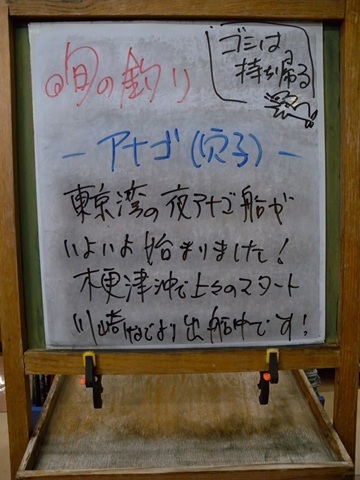 旬の釣り
ゴミは、
持ち帰る
－アナゴ(穴子)－
東京湾の夜アナゴ船が
いよいよ始まりました!
木更津沖で上々のスタート
川崎などより出船中です!